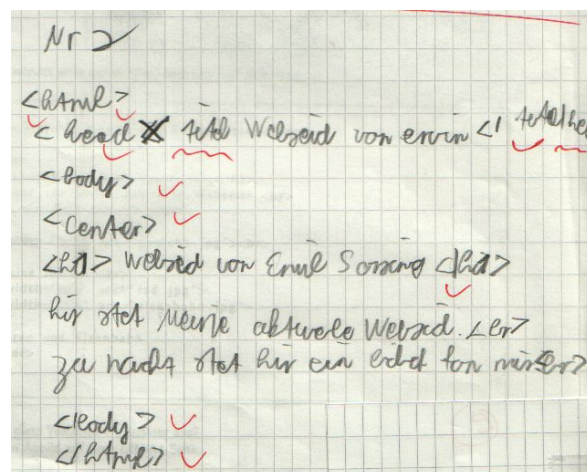 Nr 2
<html>
<head titel Webseid von erwin </ titel he
<body>
<center>
<h1> Webseid von Emil </h1>
hir stet Meine aktuele Websed. <br>
zu nachst stet hir ein bild fon mir <br>
</body>
</html>